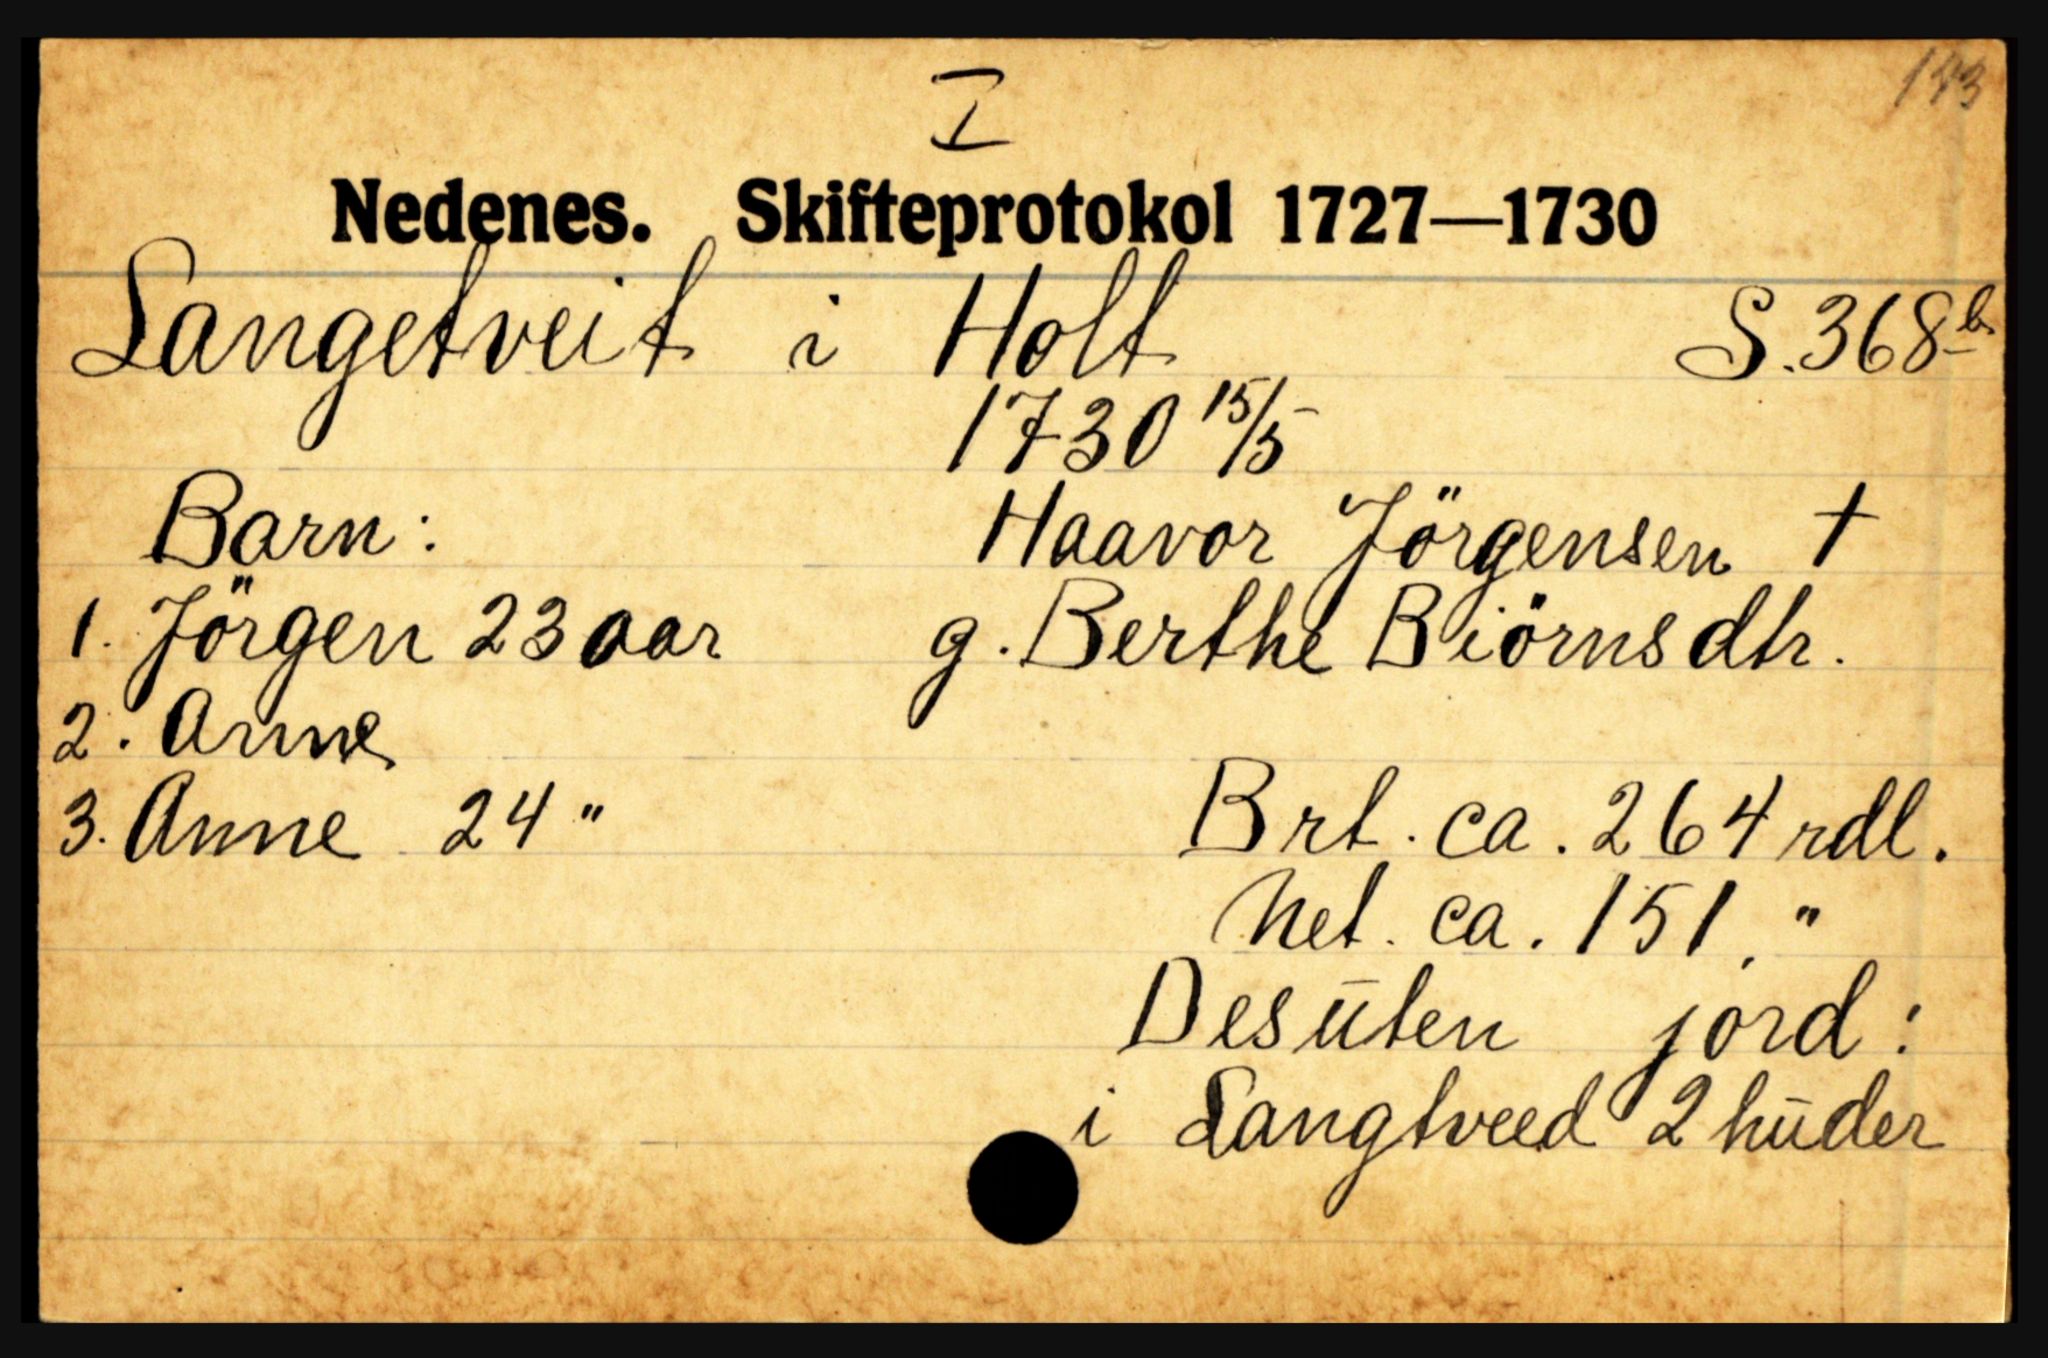 I
143
Nedenes. Skifteprotokol 1727—1730
Langetveit i Holt S. 368b
1730 15/5
Barn:
Haavor Jörgensen †
1. Jörgen 23 aar
g. Berthe Biörnsdtr.
2. Anne
3. Anne 24 "
Brt. ca. 264 rdl.
Net. ca. 151, "
Desūten jord:
i Langtveed 2 hūder